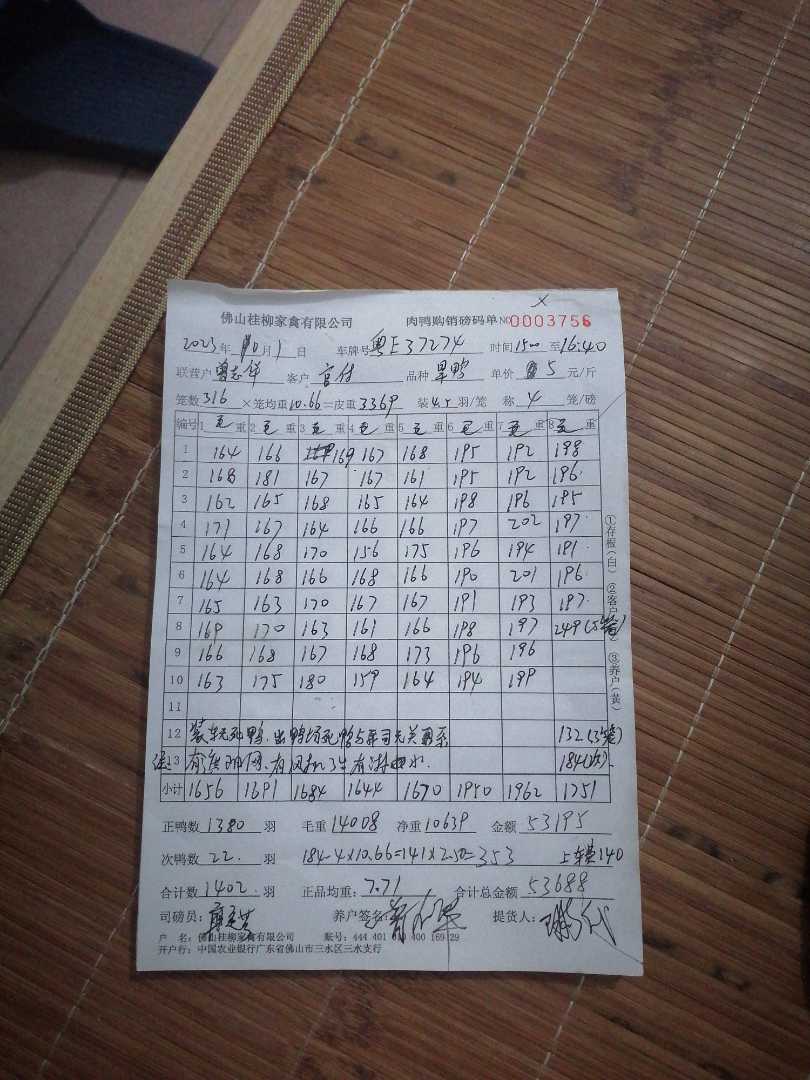 佛山桂柳家禽有限公司 肉鸭购销磅码单 NO 0003756
2023年10月1日 车牌号 粤E37274 时间 1500 至 16:40
联营户 曾志华 客户 品种 单价 5 元/斤
笼数 316 ×笼均重 10.66=皮重 3369 装 4.5 羽/笼 称 4 笼/磅
编号 1 毛重 2 毛重 3 毛重 4 毛重 5 毛重 6 毛重 7 毛重 8 毛重
1 164 166 169 167 168 195 192 198
2 168 181 167 167 161 195 192 196
3 162 165 168 165 164 198 186 195
4 171 167 164 166 166 197 202 197
5 164 168 170 156 175 196 194 191
6 164 168 166 168 166 190 201 196
7 165 163 170 167 167 191 193 197
8 169 170 163 161 166 198 197 249(5笼)
9 166 168 167 168 173 196 196
10 163 175 180 159 164 194 199
11
12 装车死鸭,出鸭场死鸭与本司无关系 132(3笼)
13 184(次)
小计 1656 1691 1684 1644 1670 1950 1962 1751
正鸭数 1380 羽 毛重 14008 净重 10639 金额 53195
次鸭数 22 羽 184-4×10.66=141×2.50=353 上车费140
合计数 1402 羽 正品均重: 7.71 合计总金额 53688
司磅员: 养户签名: 提货人:
户 名: 佛山桂柳家禽有限公司 账号: 444 401 400 169 29
开户行: 中国农业银行广东省佛山市三水区三水支行
①存根(白) ②客户 ③养户(黄)